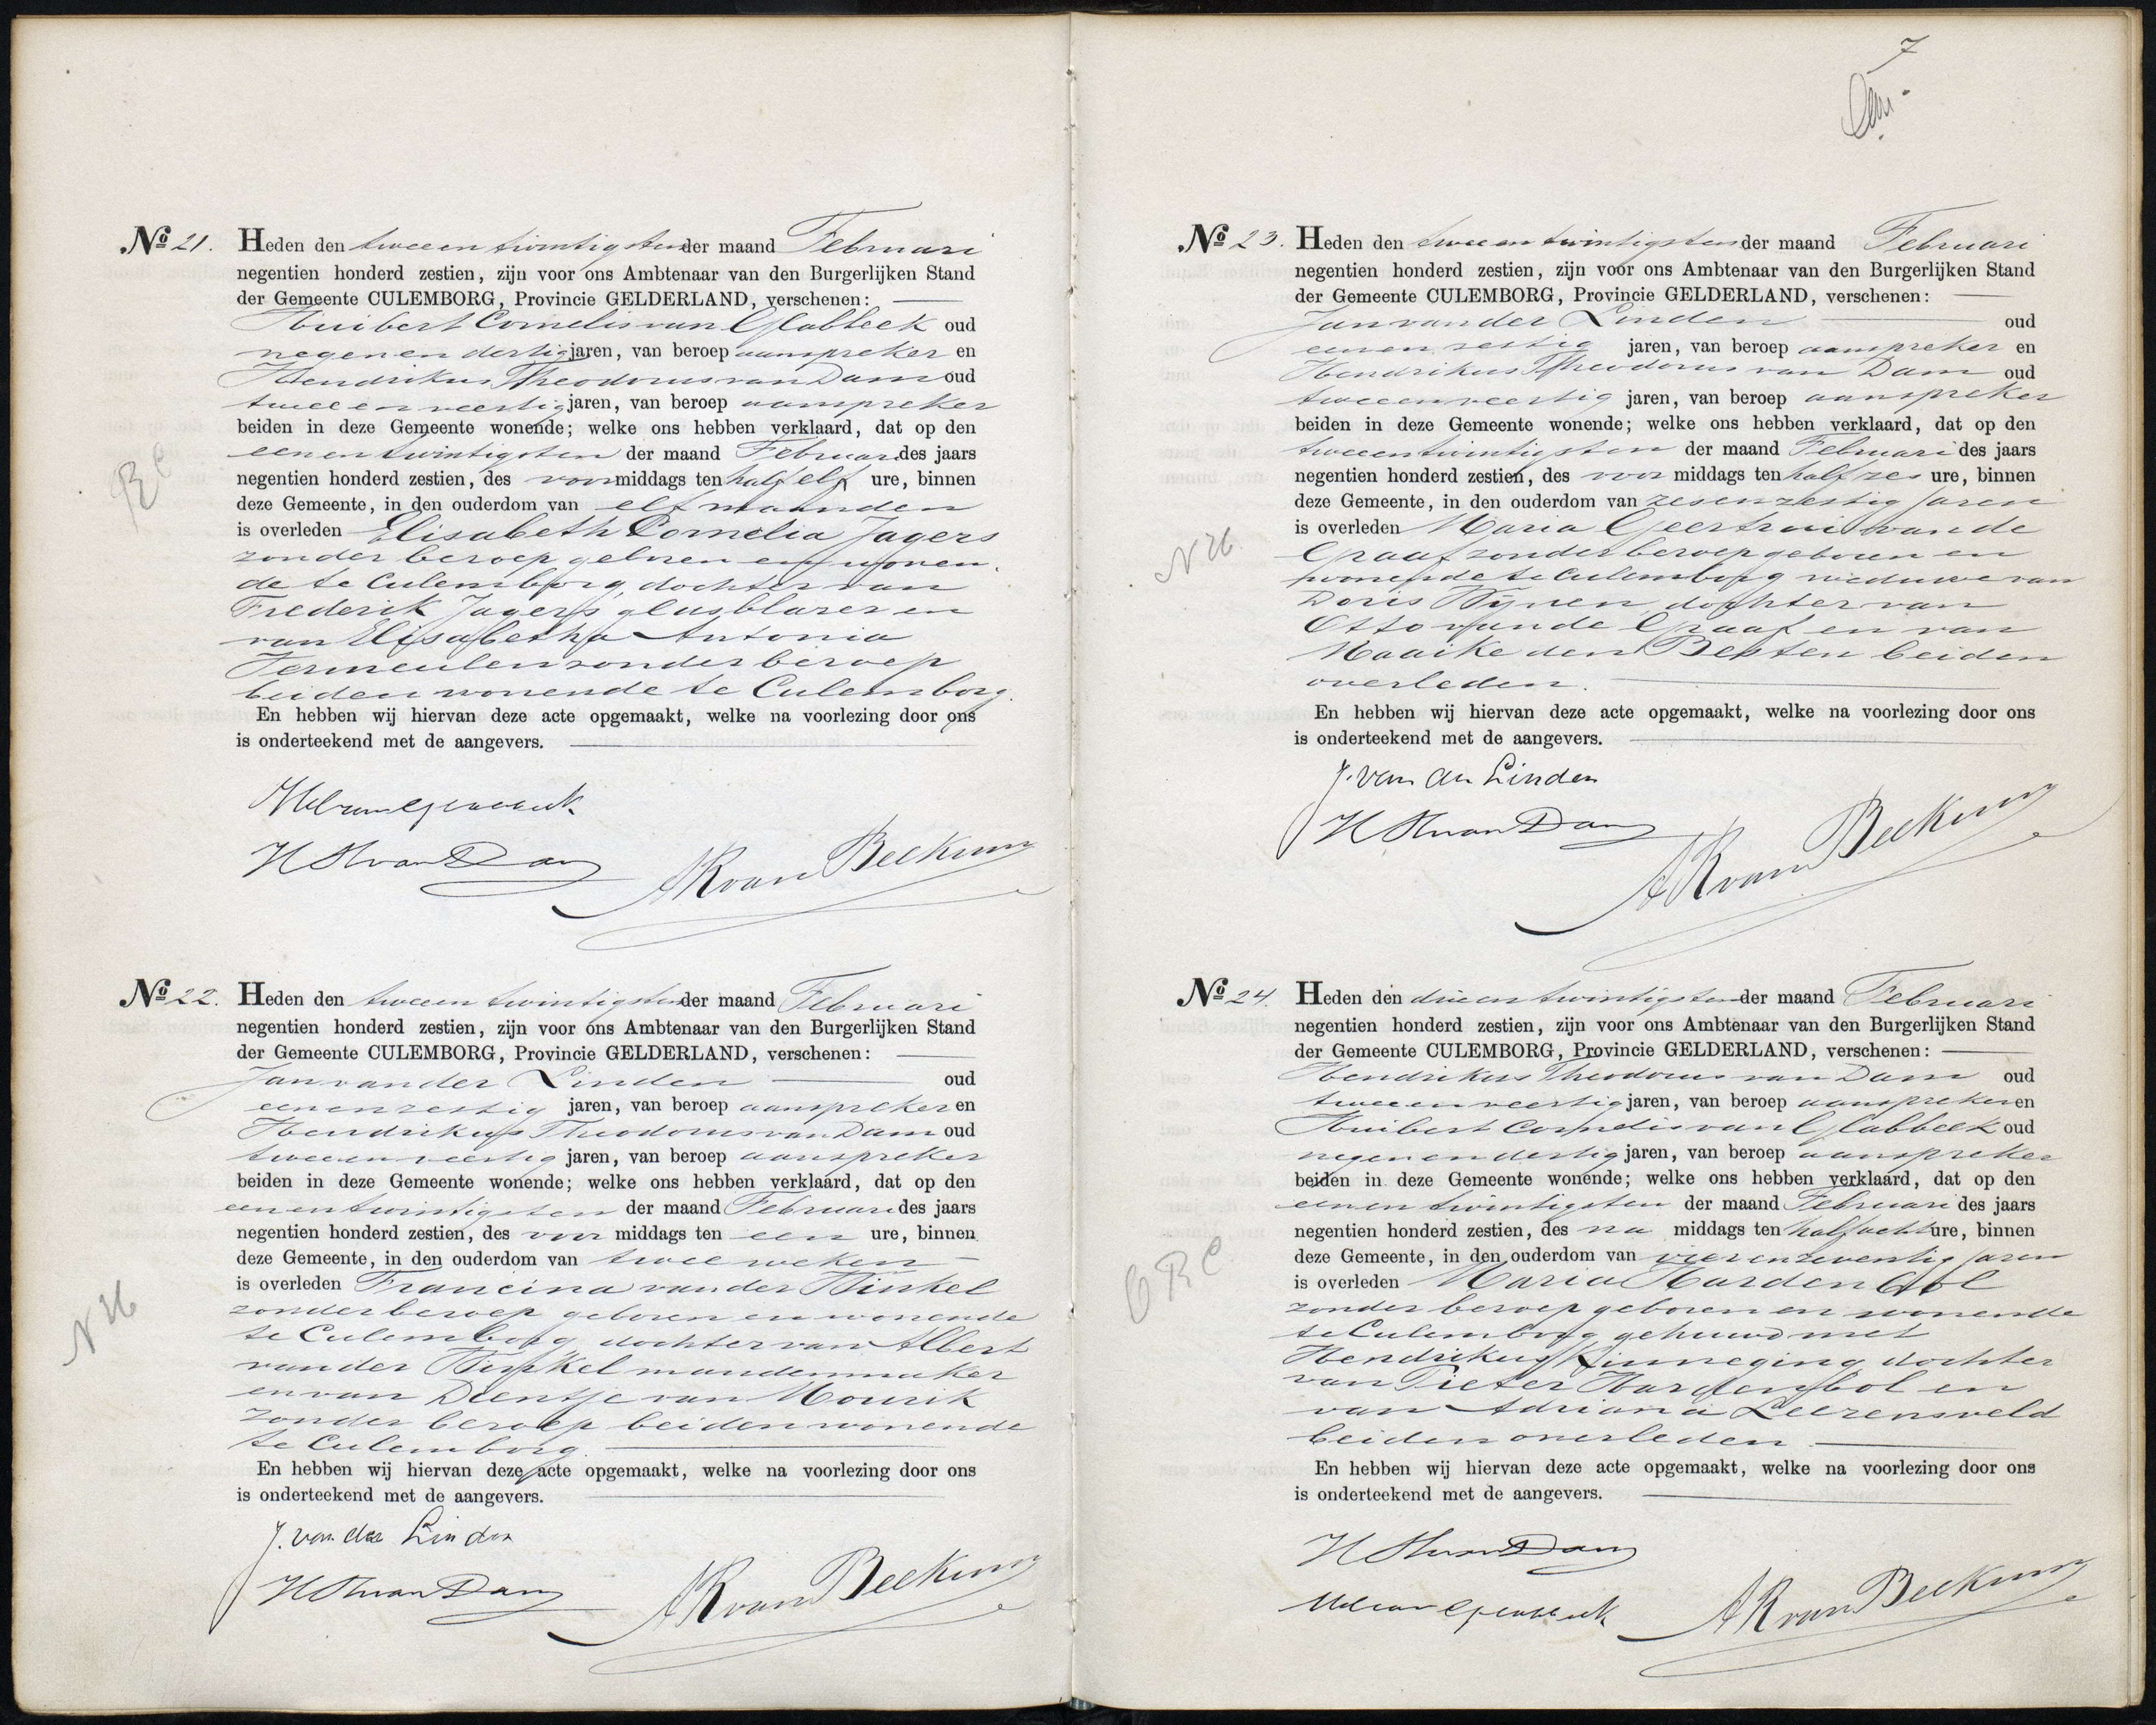 No 21. Heden den tweeen twintigsten der maand Februari
negentien honderd zestien, zijn voor ons Ambtenaar van den Burgerlijken Stand
der Gemeente CULEMBORG, Provincie GELDERLAND, verschenen:
Huibert Cornelis van Glabbeek oud
negen en dertig jaren, van beroep aanspreker en
Hendrikus Theodorus van Dam oud
tweeen veertig jaren, van beroep aanspreker
beiden in deze Gemeente wonende; welke ons hebben verklaard, dat op den
eenen twintigsten der maand Februari des jaars
negentien honderd zestien, des voormiddags ten half elf ure, binnen
RC
deze Gemeente, in den ouderdom van elf maanden
is overleden Elisabeth Cornelia Jagers
zonder beroep geboren en wonen-
de te Culemborg, dochter van
Frederik Jagers glasblazer en
van Elisabetha Antonia
Vermeulen zonder beroep
beiden wonende te Culemborg.
En hebben wij hiervan deze acte opgemaakt, welke na voorlezing door ons
is onderteekend met de aangevers.
HCvanGlabbeek
HThvanDam
ARvanBeekum
No 22. Heden den tweeen twintigsten der maand Februari
negentien honderd zestien, zijn voor ons Ambtenaar van den Burgerlijken Stand
der Gemeente CULEMBORG, Provincie GELDERLAND, verschenen:
Jan van der Linden oud
eenen zestig jaren, van beroep aanspreker en
Hendrikus Theodorus van Dam oud
tweeen veertig jaren, van beroep aanspreker
beiden in deze Gemeente wonende; welke ons hebben verklaard, dat op den
eenen twintigsten der maand Februari des jaars
negentien honderd zestien, des voor middags ten een ure, binnen
deze Gemeente, in den ouderdom van twee weken
is overleden Francina van der
NH
zonder beroep geboren en wonende
te Culemborg, dochter van Albert
van der mandenmaker
en van Dientje van Mourik
zonder beroep beiden wonende
te Culemborg.
En hebben wij hiervan deze acte opgemaakt, welke na voorlezing door ons
is onderteekend met de aangevers.
J. van der Linden
HThvanDam
ARvanBeekum
7
No 23. Heden den tweeen twintigsten der maand Februari
negentien honderd zestien, zijn voor ons Ambtenaar van den Burgerlijken Stand
der Gemeente CULEMBORG, Provincie GELDERLAND, verschenen:
Jan van der Linden oud
eenen zestig jaren, van beroep aanspreker en
Hendrikus Theodorus van Dam oud
tweeen veertig jaren, van beroep aanspreker
beiden in deze Gemeente wonende; welke ons hebben verklaard, dat op den
tweeen twintigsten der maand Februari des jaars
negentien honderd zestien, des voor middags ten half zes ure, binnen
deze Gemeente, in den ouderdom van zesenzestig jaren
is overleden Maria Geertrui van de
NH.
Graaf zonder beroep geboren en
wonende te Culemborg weduwe van
Doris dochter van
Otto van de Graaf en van
Maaike den Besten beiden
overleden.
En hebben wij hiervan deze acte opgemaakt, welke na voorlezing door ons
is onderteekend met de aangevers.
J. van der Linden
HThvanDam
ARvanBeekum
No 24. Heden den drieen twintigsten der maand Februari
negentien honderd zestien, zijn voor ons Ambtenaar van den Burgerlijken Stand
der Gemeente CULEMBORG, Provincie GELDERLAND, verschenen:
Hendrikus Theodorus van Dam oud
tweeen veertig jaren, van beroep aanspreker en
Huibert Cornelis van Glabbeek oud
negen en dertig jaren, van beroep aanspreker
beiden in deze Gemeente wonende; welke ons hebben verklaard, dat op den
eenen twintigsten der maand Februari des jaars
negentien honderd zestien, des na middags ten half acht ure, binnen
deze Gemeente, in den ouderdom van vier en zeventig jaren
is overleden Maria Hardenbol
ORC
zonder beroep geboren en wonende
te Culemborg gehuwd met
Hendrikus Kinneging dochter
van Pieter Hardenbol en
van Adriana Leerensveld
beiden overleden.
En hebben wij hiervan deze acte opgemaakt, welke na voorlezing door ons
is onderteekend met de aangevers.
HThvanDam
HCvanGlabbeek
ARvanBeekum